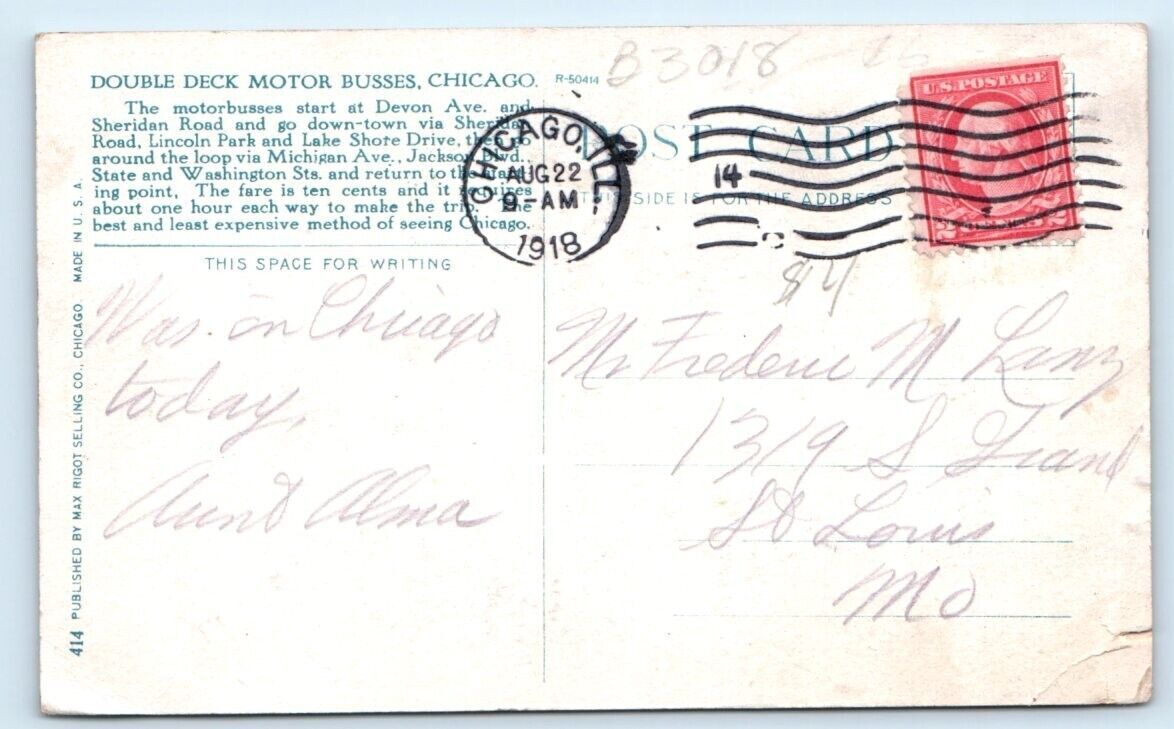 DOUBLE DECK MOTOR BUSSES, CHICAGO. R-50414
The motorbusses start at Devon Ave. and
Sheridan Road and go down-town via Sheridan
Road, Lincoln Park and Lake Shore Drive, then go
around the loop via Michigan Ave., Jackson Blvd.,
State and Washington Sts. and return to the start-
ing point. The fare is ten cents and it requires
about one hour each way to make the trip. The
best and least expensive method of seeing Chicago.
THIS SPACE FOR WRITING
Was in Chicago
today.
Aunt Alma
414 PUBLISHED BY MAX RIGOT SELLING CO., CHICAGO. MADE IN U. S. A.
B3018
CHICAGO, ILL.
AUG 22
9-AM
1918
14
POST CARD
THIS SIDE IS FOR THE ADDRESS
U.S. POSTAGE
2 2
$4
Mr Frederic M Lanz
1319 S Grand
St Louis
Mo